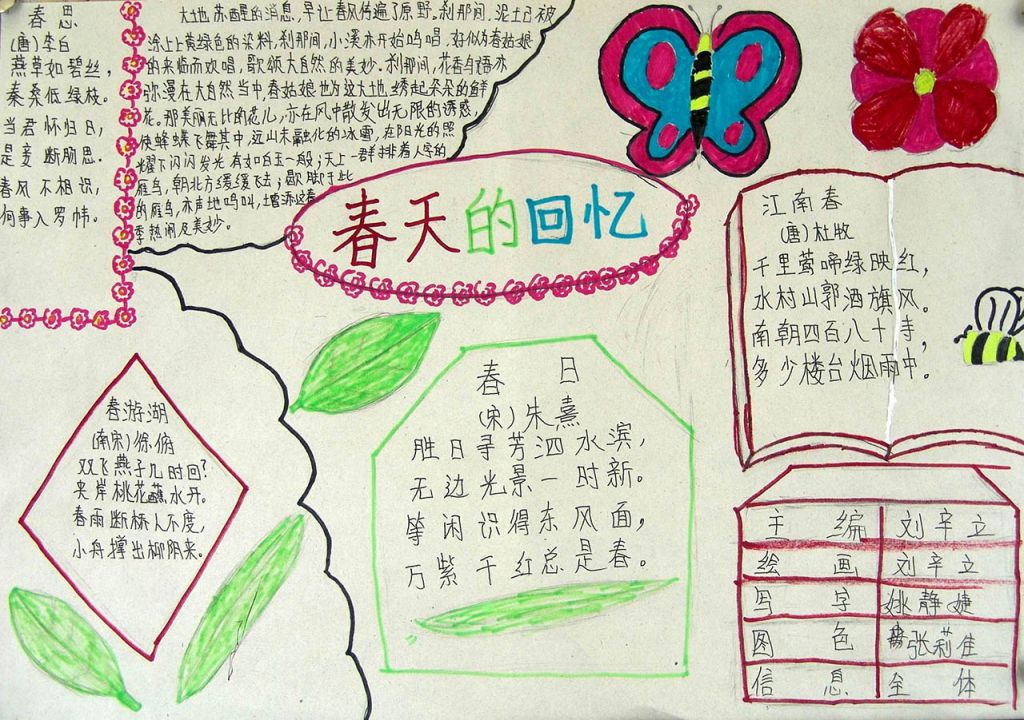 春思
(唐)李白
燕草如碧丝，
秦桑低绿枝。
当君怀归日，
是妾断肠思。
春风不相识，
何事入罗帏。
大地苏醒的消息，早让春风传遍了原野。刹那间，泥土已被
涂上上黄绿色的染料，刹那间，小溪亦开始鸣唱，好似为春姑娘
的来临而欢唱，歌颂大自然的美妙。刹那间，花香鸟语亦
弥漫在大自然当中，春姑娘地方这大地绣起朵朵的鲜
花。那美丽无比的花儿，亦在风中散发出无限的诱惑，
使蜂蝶飞舞其中，远山未融化的冰雪，在阳光的照
耀下闪闪发光有如白玉一般；天上一群排着人字的
雁鸟，朝北方缓缓飞去；歇脚于此
的雁鸟，亦声地鸣叫，增添这春
季热闹及美妙。
春天的回忆
江南春
(唐)杜牧
千里莺啼绿映红，
水村山郭酒旗风。
南朝四百八十寺，
多少楼台烟雨中。
春游湖
(南宋)徐俯
双飞燕子几时回？
夹岸桃花蘸水开。
春雨断桥人不度，
小舟撑出柳阴来。
春 日
(宋)朱熹
胜日寻芳泗水滨，
无边光景一时新。
等闲识得东风面，
万紫千红总是春。
主编 刘辛立
绘画 刘辛立
写字 姚静婕
图色 张莉佳
信息 全体